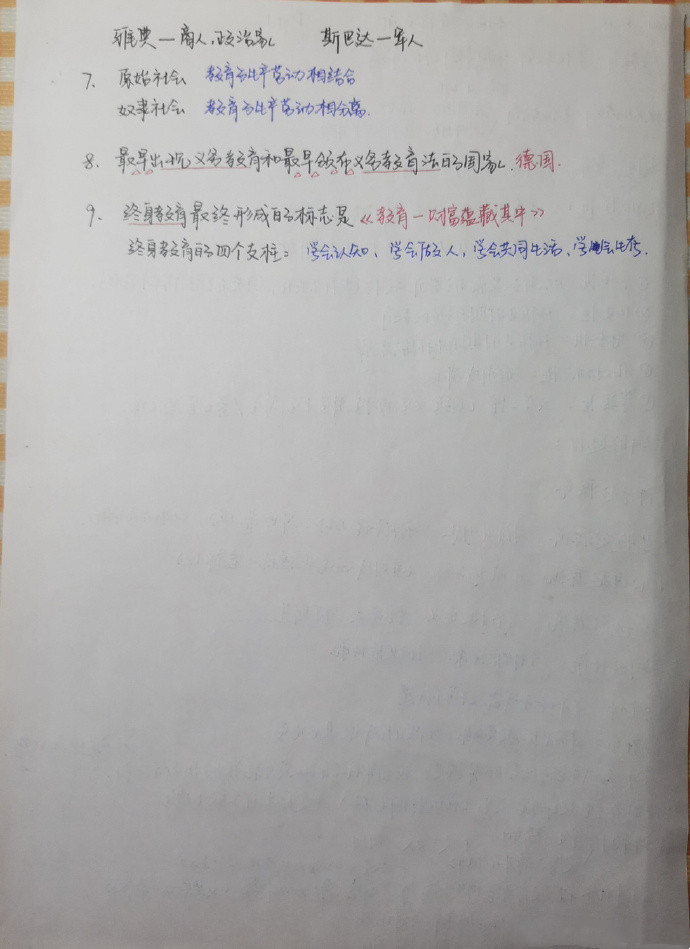 雅典—商人,政治家 斯巴达—军人
7、原始社会 教育与生产劳动相结合
奴隶社会 教育与生产劳动相分离.
8、最早出现义务教育和最早颁布义务教育法的国家 德国.
9、终身教育最终形成的标志是《教育—财富蕴藏其中》
终身教育的四个支柱:学会认知、学会做人,学会共同生活、学会生存.